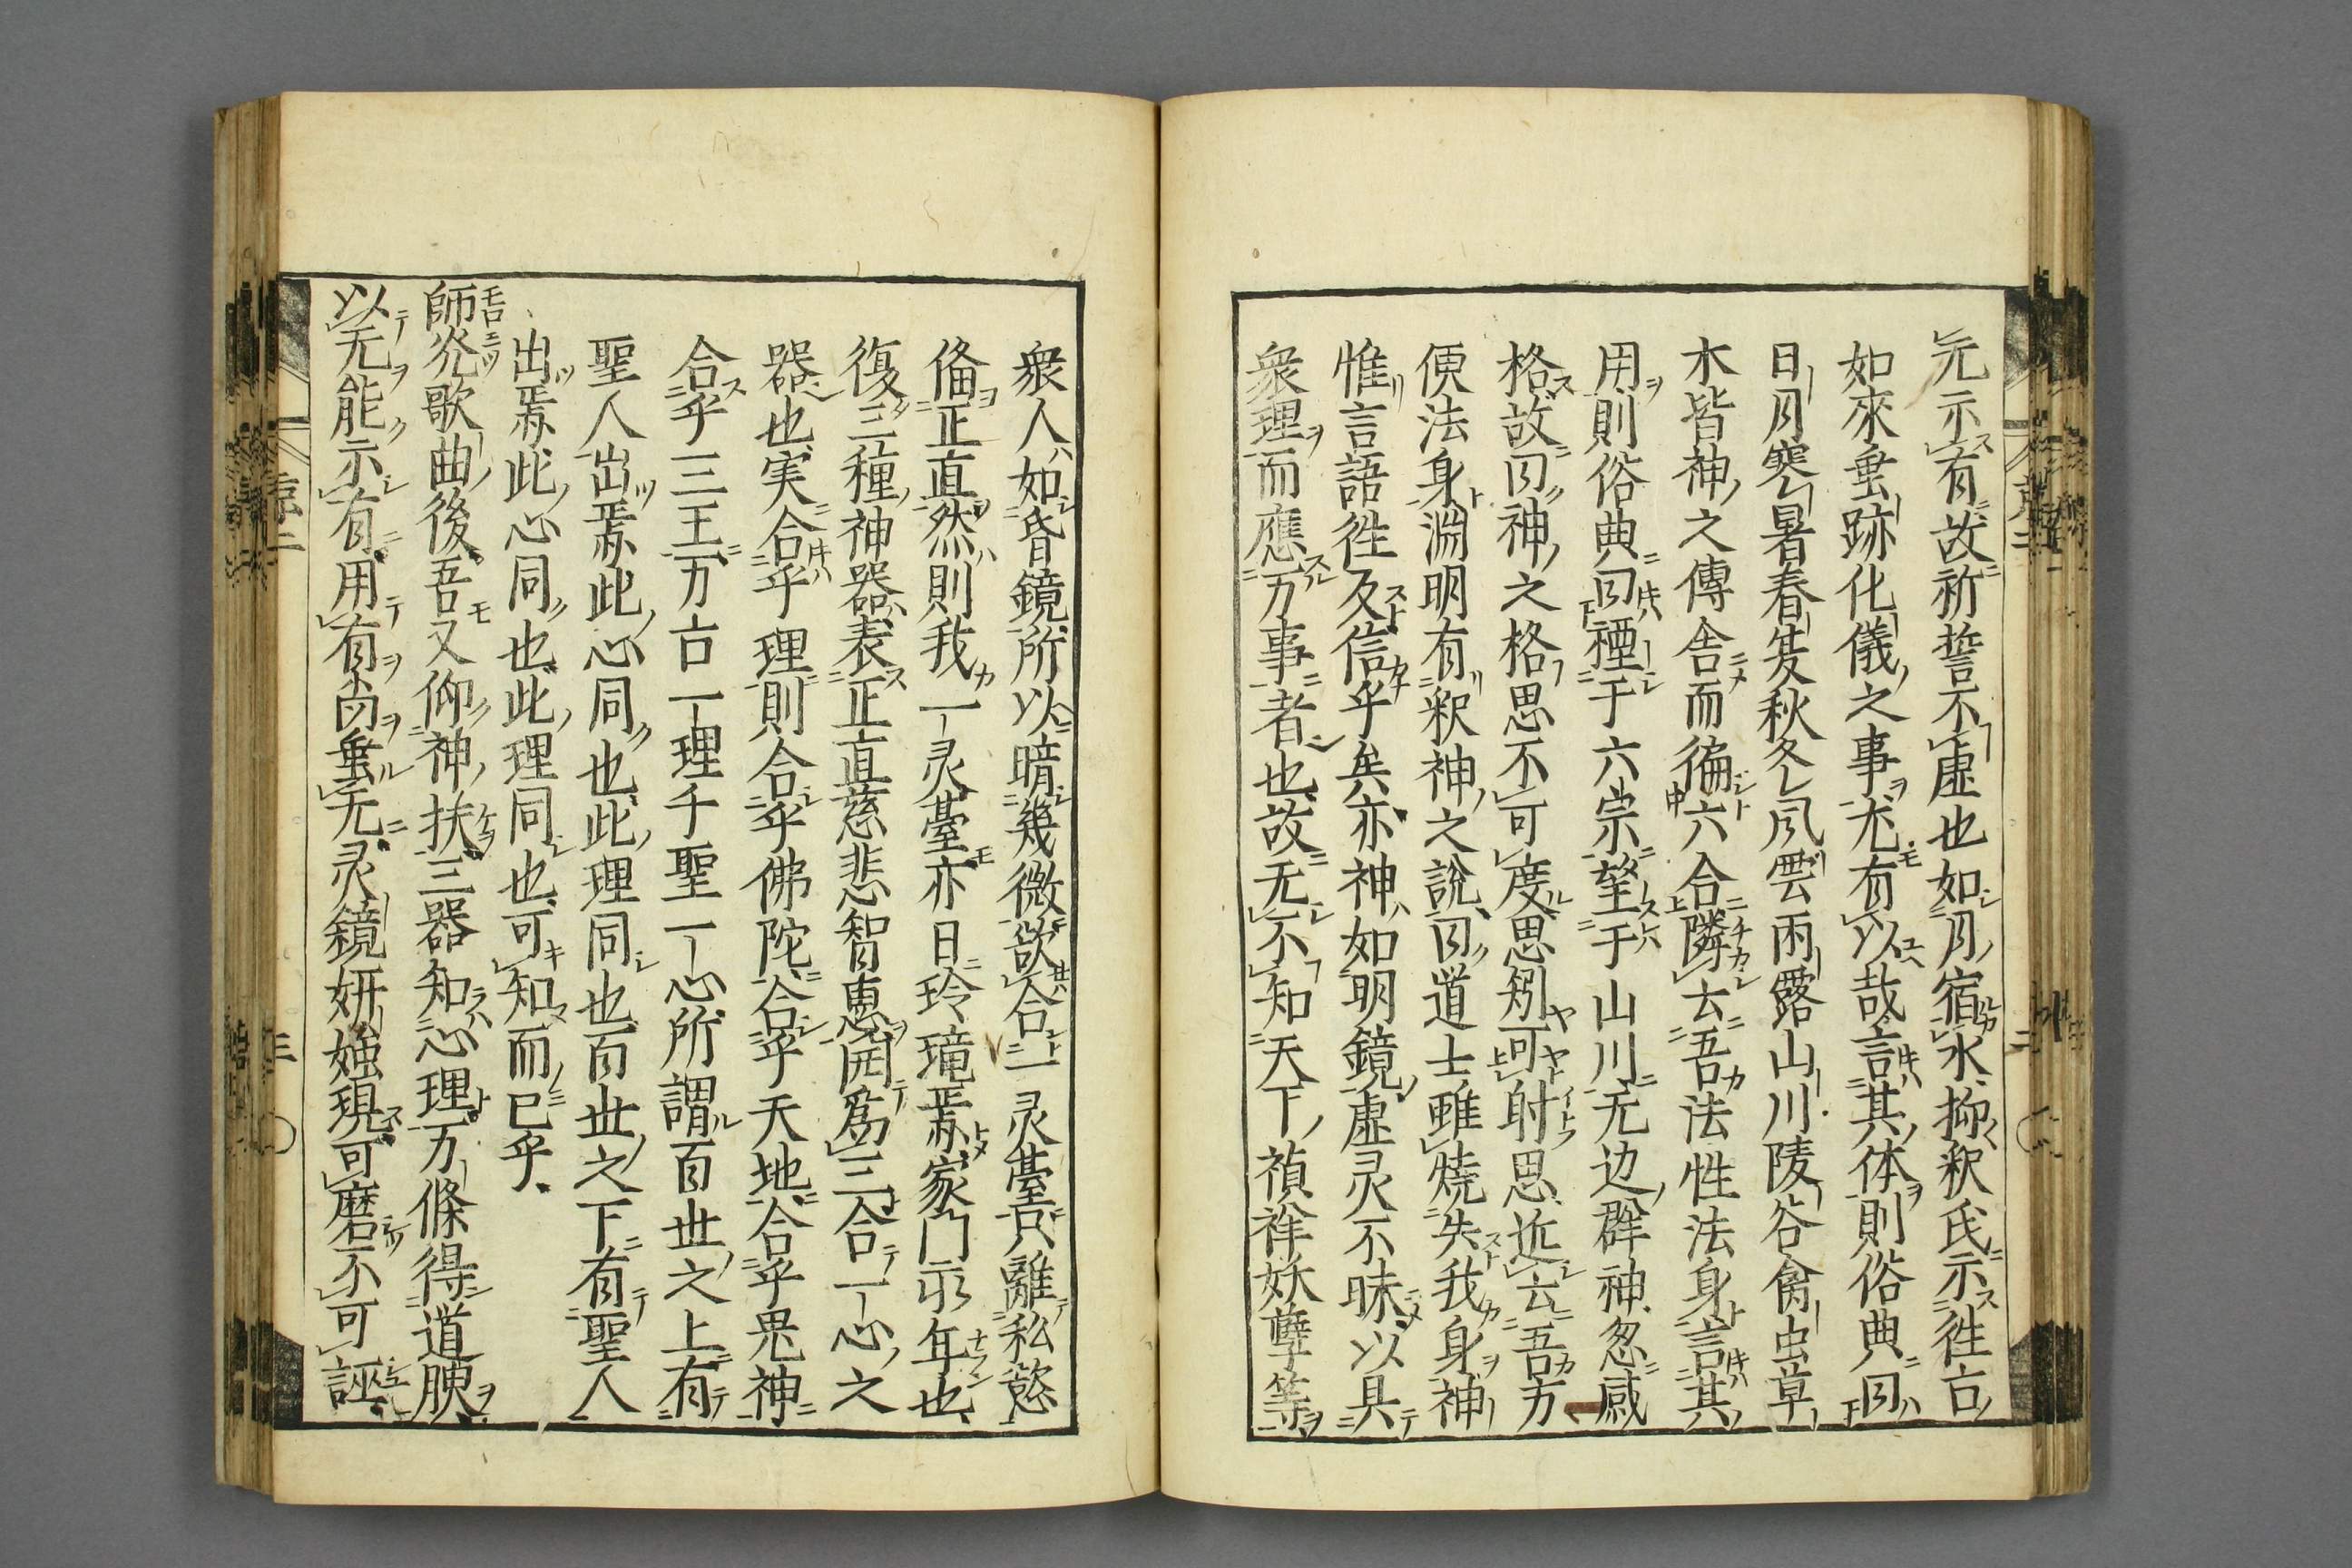 无示有故祈誓不虚也如月宿水抑釈氏示徃古
如來垂跡化儀之事尤有以哉言其体則俗典曰
日月寒暑春夏秋冬風雲雨露山川陵谷禽虫草
木皆神之傳舎而徧六合隣云吾法性法身言其
用則俗典曰禋于六宗望于山川无边群神忽感
格故曰神之格思不可度思矧可射思近云吾方
便法身淵明有釈神之說曰道士雖燒失我身神
惟言語徃及信乎矣亦神如明鏡虚灵不昧以具
衆理而應万事者也故无不知天下禎祥妖孽等
衆人如昏鏡所以暗幾微欲合一灵䑓只離私慾
俻正直然則我一灵臺亦日玲瓏焉家門示年也
復三種神器表正直慈悲智惠開為三合一心之
器也実合乎理則合乎佛陀合乎天地合乎鬼神
合乎三王万古一理千聖一心所謂百世之上有
聖人出焉此心同也此理同也百世之下有聖人
出焉此心同也此理同也可知而已乎
師㳒歌曲後吾又仰神扶三器知心理万條得道腴
以无能示有用有卤垂无灵鏡妍媸現可磨不可誣